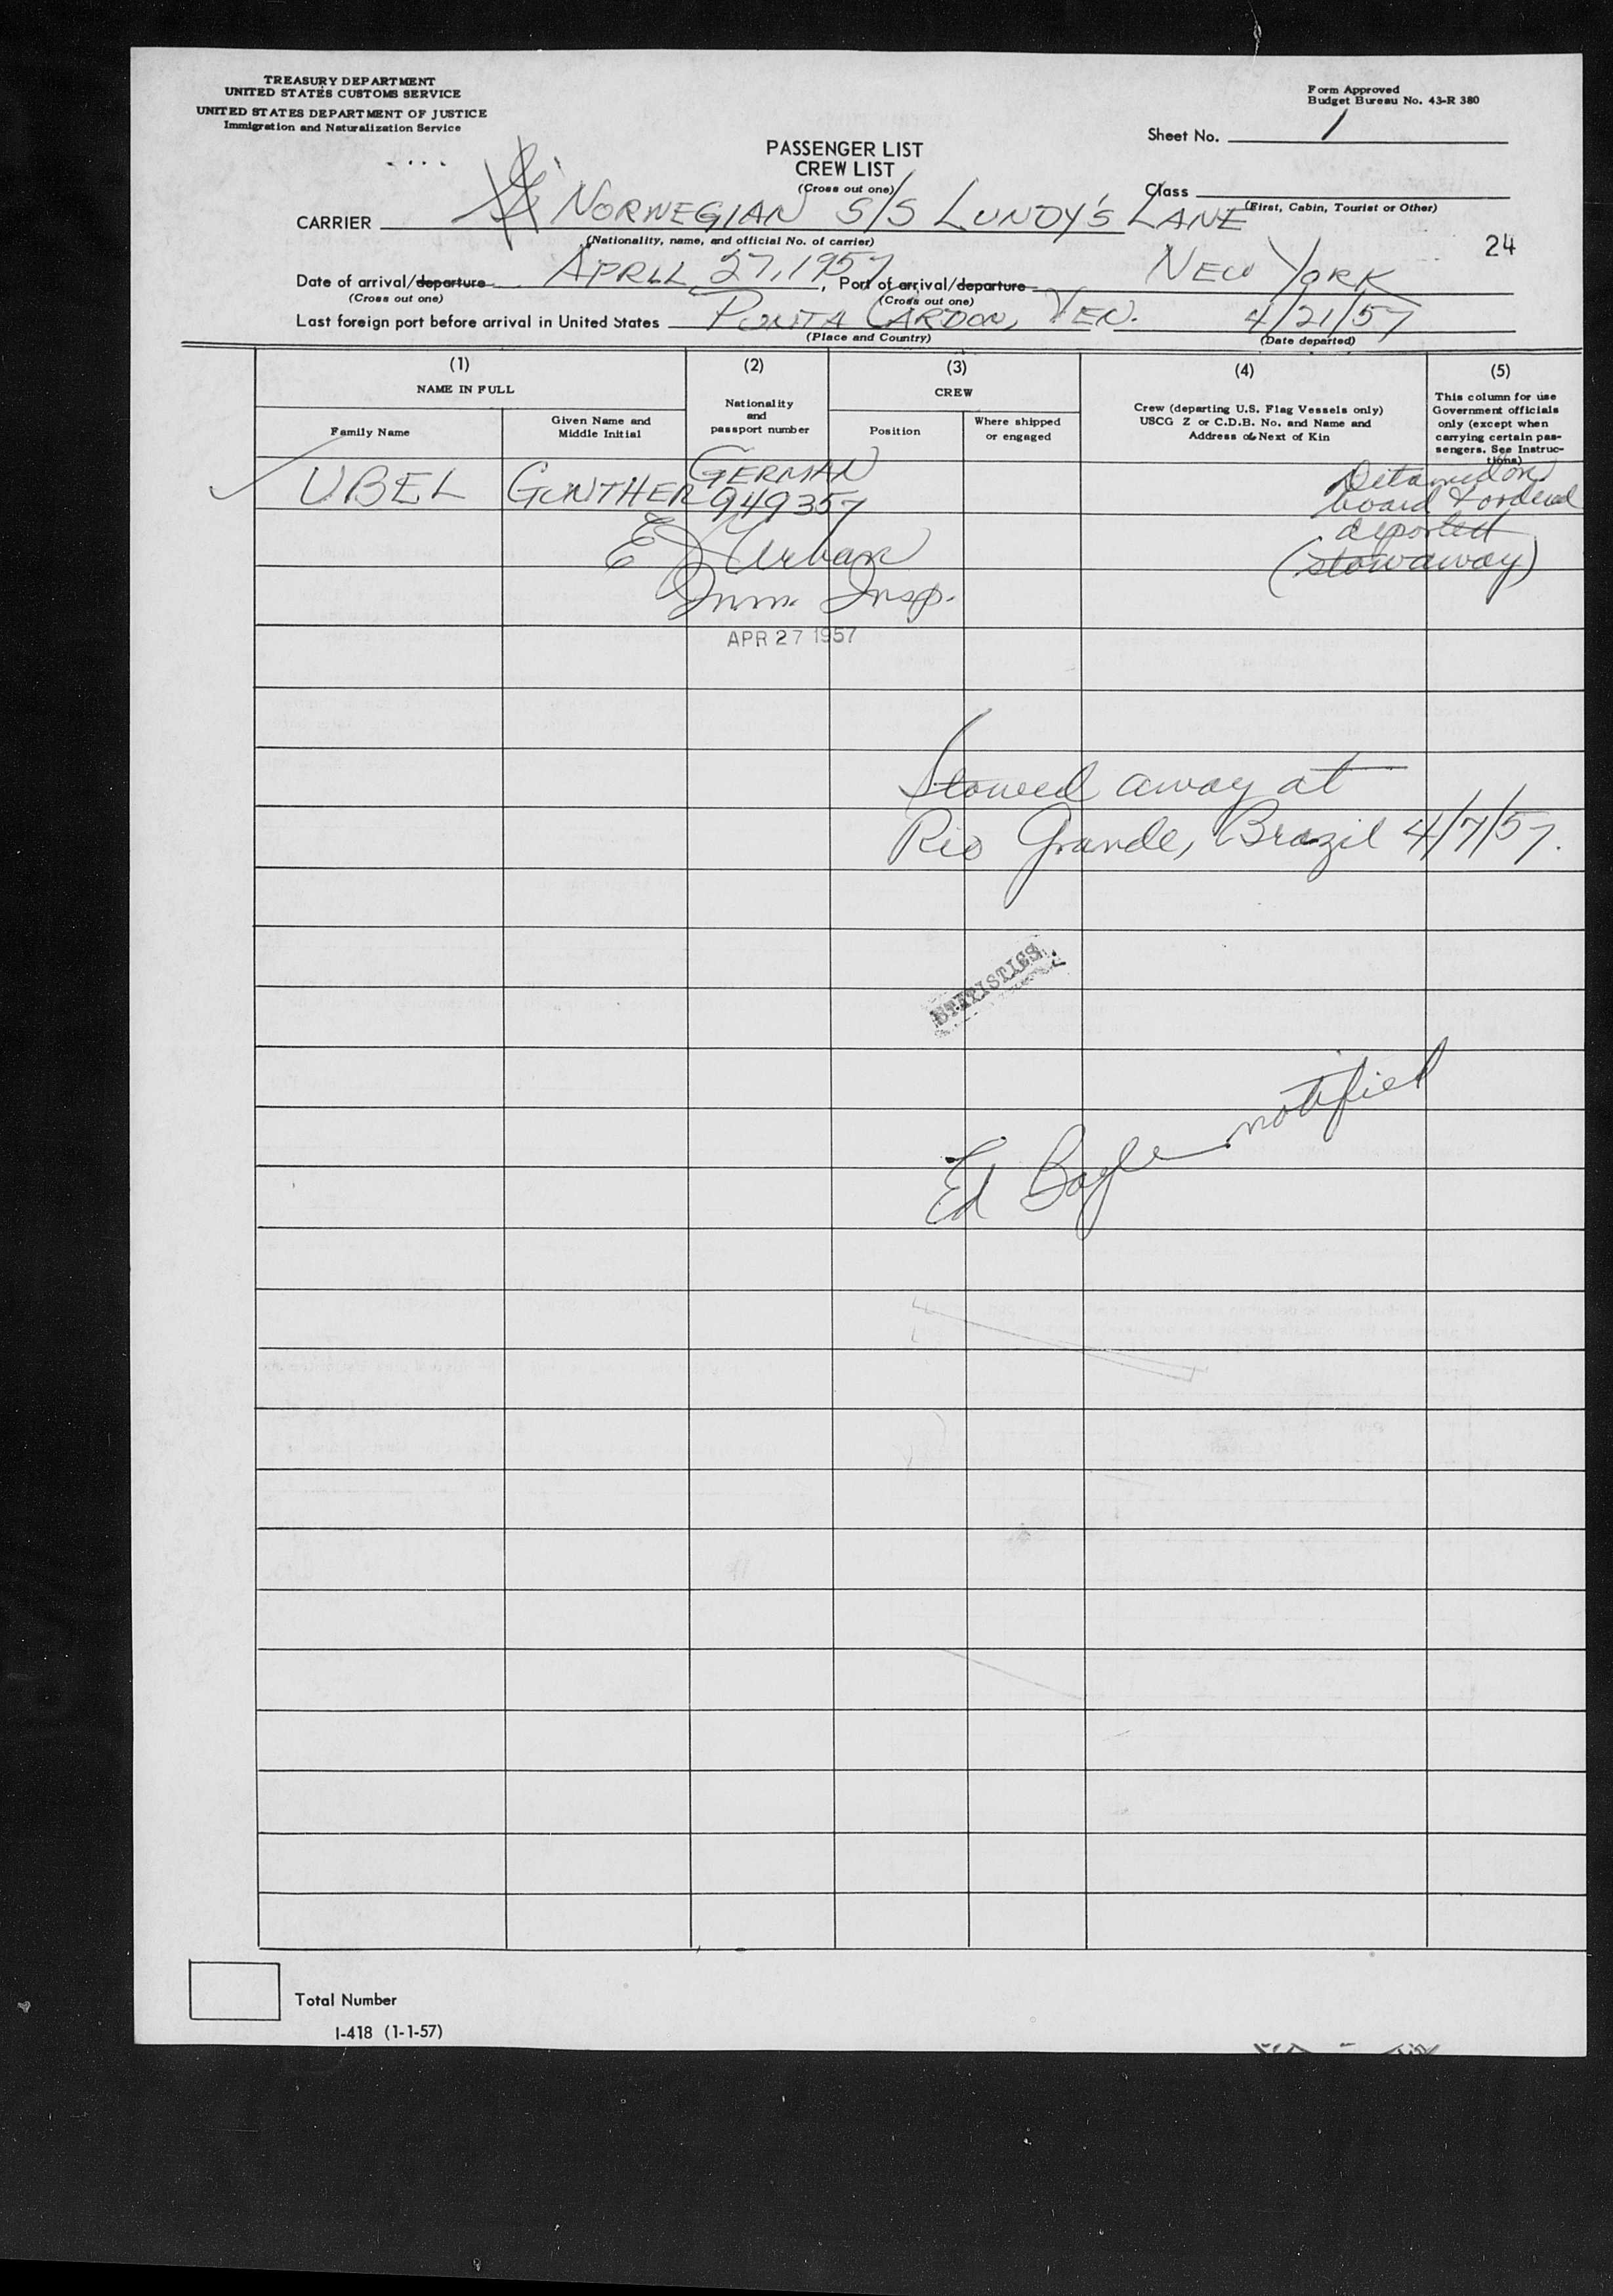 TREASURY DEPARTMENT
UNITED STATES CUSTOMS SERVICE
UNITED STATES DEPARTMENT OF JUSTICE
Immigration and Naturalization Service
Form Approved
Budget Bureau No. 43-R 380
Sheet No. 1
PASSENGER LIST
CREW LIST
(Cross out one)
Class
(First, Cabin, Tourist or Other)
CARRIER NORWEGIAN S/S LUNDY'S LANE
(Nationality, name, and official No. of carrier)
24
Date of arrival/departure APRIL 27, 1957, Port of arrival/departure NEW YORK
(Cross out one) (Cross out one)
Last foreign port before arrival in United States PUNTA CARDON, VEN. 4/21/57
(Place and Country) (Date departed)
(1) (2) (3) (4) (5)
NAME IN FULL
Family Name
Given Name and
Middle Initial
Nationality
and
passport number
CREW
Position
Where shipped
or engaged
Crew (departing U.S. Flag Vessels only)
USCG Z or C.D.B. No. and Name and
Address of Next of Kin
This column for use
Government officials
only (except when
carrying certain pas-
sengers. See Instruc-
tions)
UBEL GUNTHER GERMAN
949357
Detained on
board & ordered
deported
(stowaway)
E J Urban
Imm. Insp.
APR 27 1957
Stowed away at
Rio Grande, Brazil 4/7/57.
STATISTICS
Ed notified
Total Number
I-418 (1-1-57)